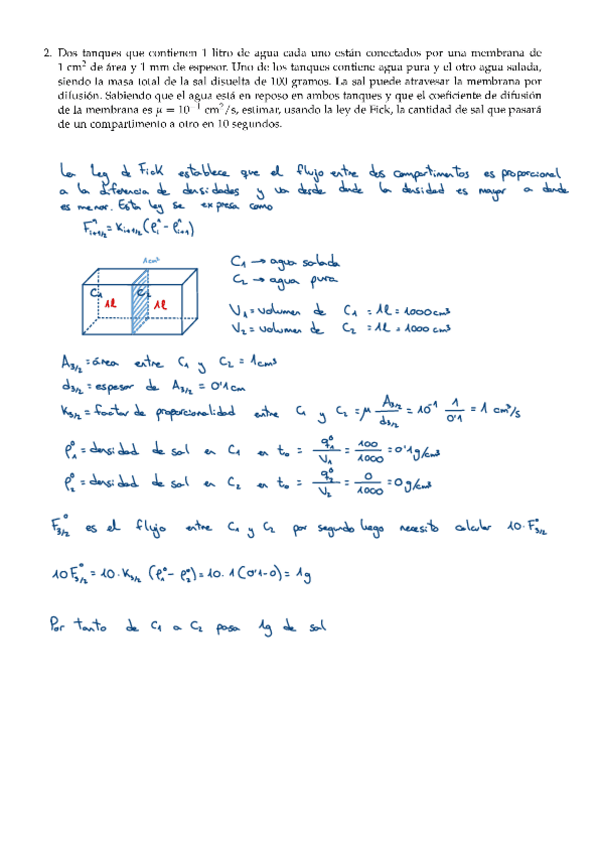 2. Dos tanques que contienen 1 litro de agua cada uno están conectados por una membrana de
1 cm² de área y 1 mm de espesor. Uno de los tanques contiene agua pura y el otro agua salada,
siendo la masa total de la sal disuelta de 100 gramos. La sal puede atravesar la membrana por
difusión. Sabiendo que el agua está en reposo en ambos tanques y que el coeficiente de difusión
de la membrana es μ = 10⁻¹ cm²/s, estimar, usando la ley de Fick, la cantidad de sal que pasará
de un compartimento a otro en 10 segundos.
La Ley de Fick establece que el flujo entre dos compartimentos es proporcional
a la diferencia de densidades y va desde donde la densidad es mayor a donde
es menor. Esta ley se expresa como
Fⁿᵢ₊₁/₂ = Kᵢ₊₁/₂ (ρⁿᵢ - ρⁿᵢ₊₁)
1cm²
C₁ C₂
1l 1l
C₁ → agua salada
C₂ → agua pura
V₁ = volumen de C₁ = 1l = 1000 cm³
V₂ = volumen de C₂ = 1l = 1000 cm³
A₃/₂ = área entre C₁ y C₂ = 1cm²
d₃/₂ = espesor de A₃/₂ = 0'1cm
K₃/₂ = factor de proporcionalidad entre C₁ y C₂ = μ A₃/₂ / d₃/₂ = 10⁻¹ 1/0'1 = 1 cm³/s
ρ⁰₁ = densidad de sal en C₁ en t₀ = q⁰₁/V₁ = 100/1000 = 0'1 g/cm³
ρ⁰₂ = densidad de sal en C₂ en t₀ = q⁰₂/V₂ = 0/1000 = 0 g/cm³
F⁰₃/₂ es el flujo entre C₁ y C₂ por segundo luego necesito calcular 10·F⁰₃/₂
10F⁰₃/₂ = 10·K₃/₂ (ρ⁰₁ - ρ⁰₂) = 10·1(0'1-0) = 1g
Por tanto de C₁ a C₂ pasa 1g de sal